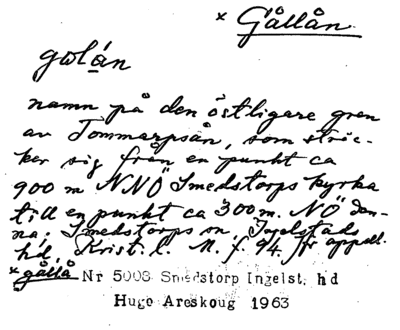 × Gållån
golán
namn på den östligare gren
av Tommarpsån, som sträc-
ker sig från en punkt ca
900 m NNÖ Smedstorps kyrka
till en punkt ca 300 m. NÖ den-
na; Smedstorps sn, Ingelstads
hd, Krist. l. N. f. 94. appell.
× gållå Nr 5008 Smedstorp Ingelst. hd
Hugo Areskoug 1963